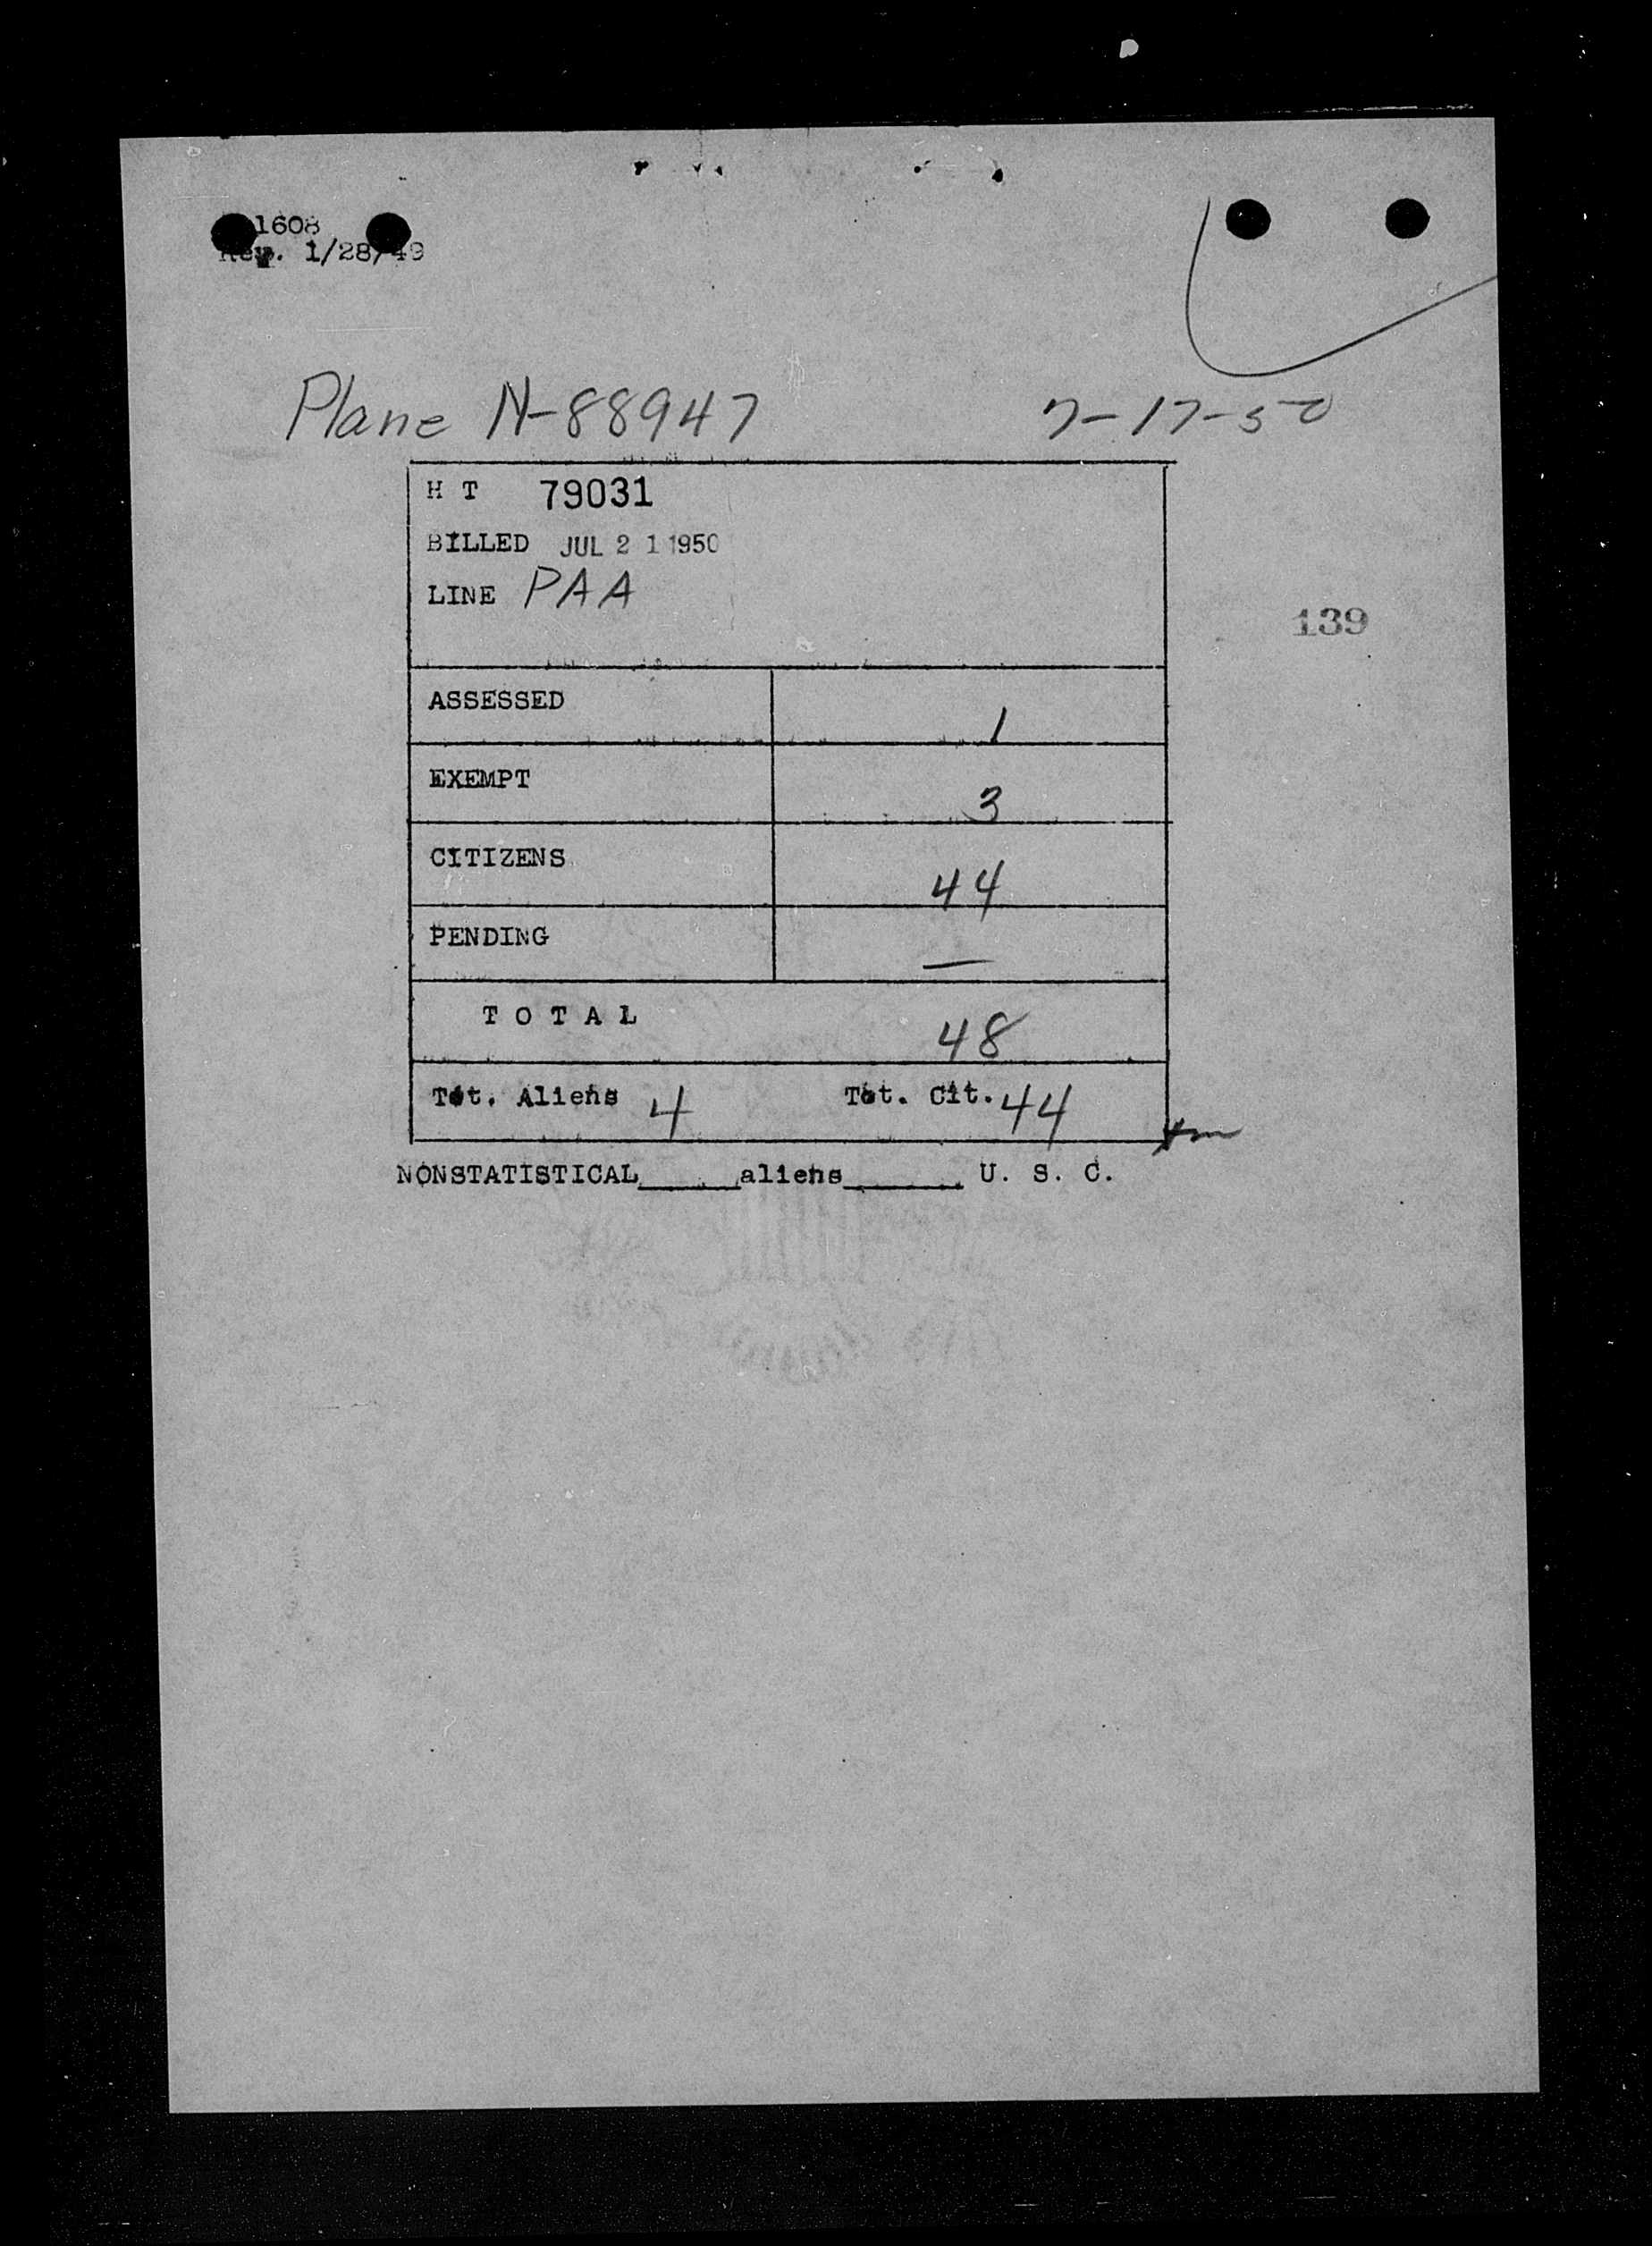 1608
Rev. 1/28/49
Plane N-88947 7-17-50
H T 79031
BILLED JUL 21 1950
LINE PAA
139
ASSESSED 1
EXEMPT 3
CITIZENS 44
PENDING —
T O T A L 48
Tot. Aliens 4 Tot. Cit. 44
NONSTATISTICAL_____aliens______ U. S. C.